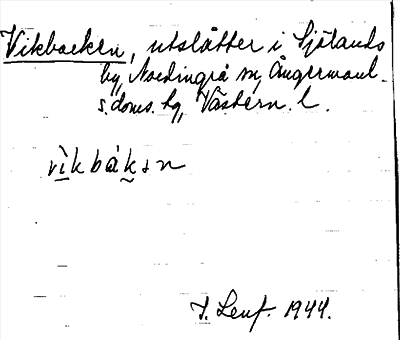 Vikbacken, utslåtter i Sjölands
by, Nordingrå sn, Ångermanl.
s. doms. hg, Västern. l.
vìkbákən
J. Lenf. 1944.